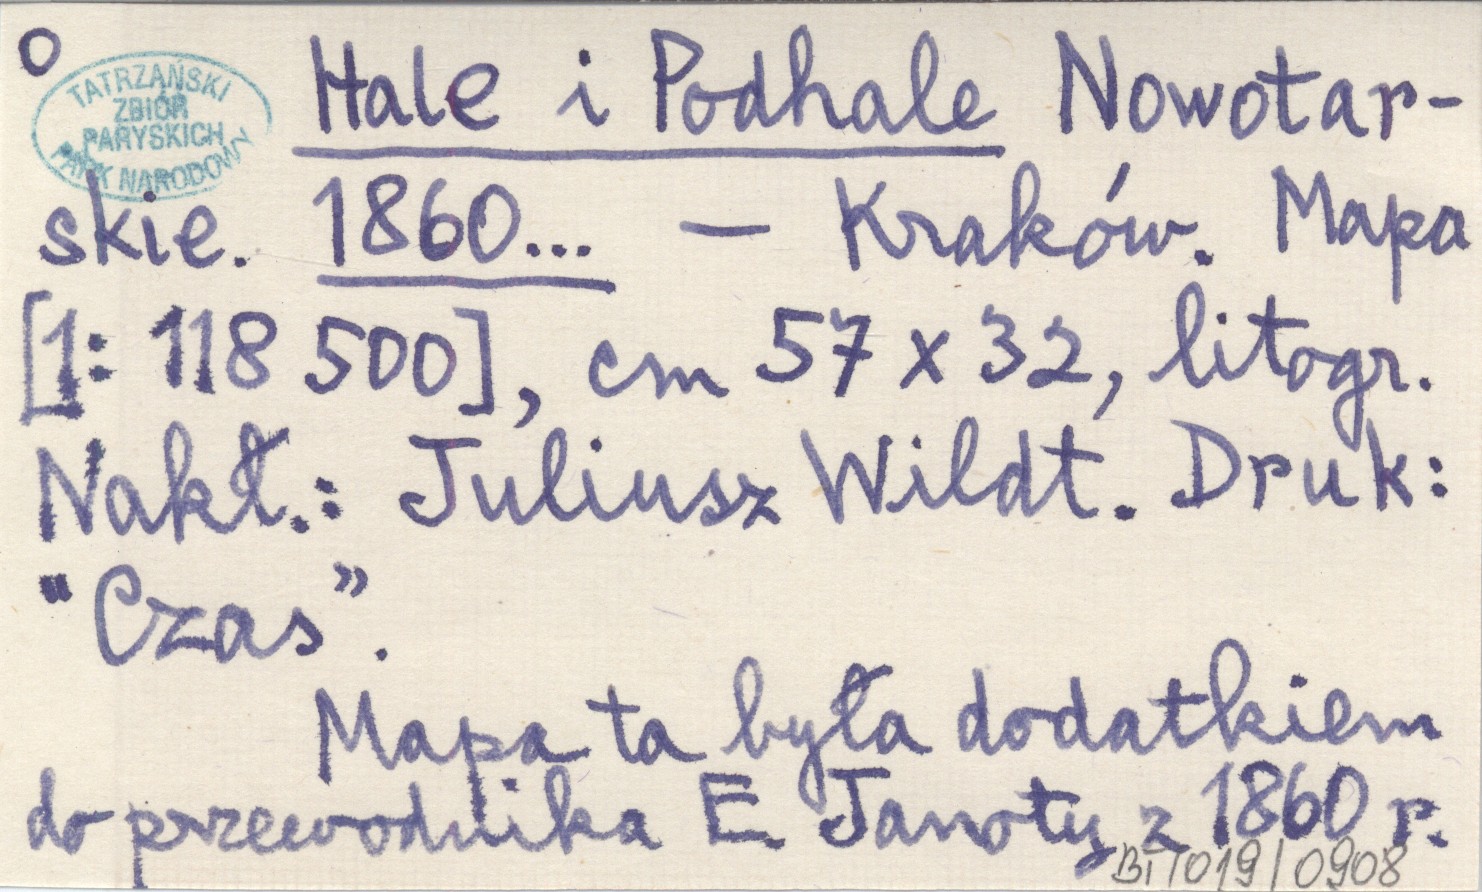 O
TATRZAŃSKI
ZBIÓR
PARYSKICH
PARK NARODOWY
Hale i Podhale Nowotar-
skie. 1860... — Kraków. Mapa
[1: 118 500], cm 57 x 32, litogr.
Nakł.: Juliusz Wildt. Druk:
"Czas".
Mapa ta była dodatkiem
do przewodnika E. Janoty z 1860 r.
BT/019/0908